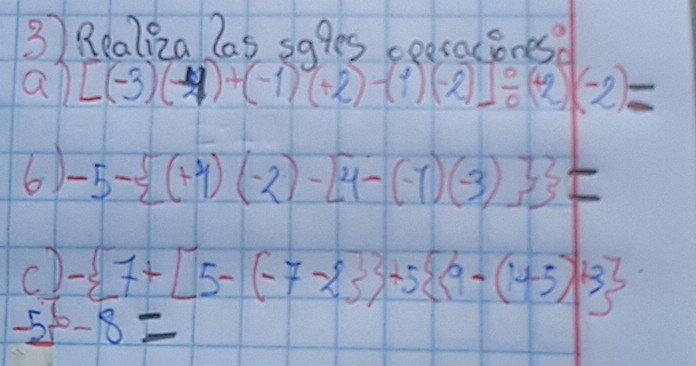 3) Realiza las sgtes operaciones:
a) [(-3)(-4)+(-1)(+2)-(1)(-2)]÷(+2)(-2)=
b) -5-{(+4)(-2)-[4-(-1)(-3)}}=
c) -{7+[5-(-7-2}}+5{{9-(14-5)+3}
-5}-8=